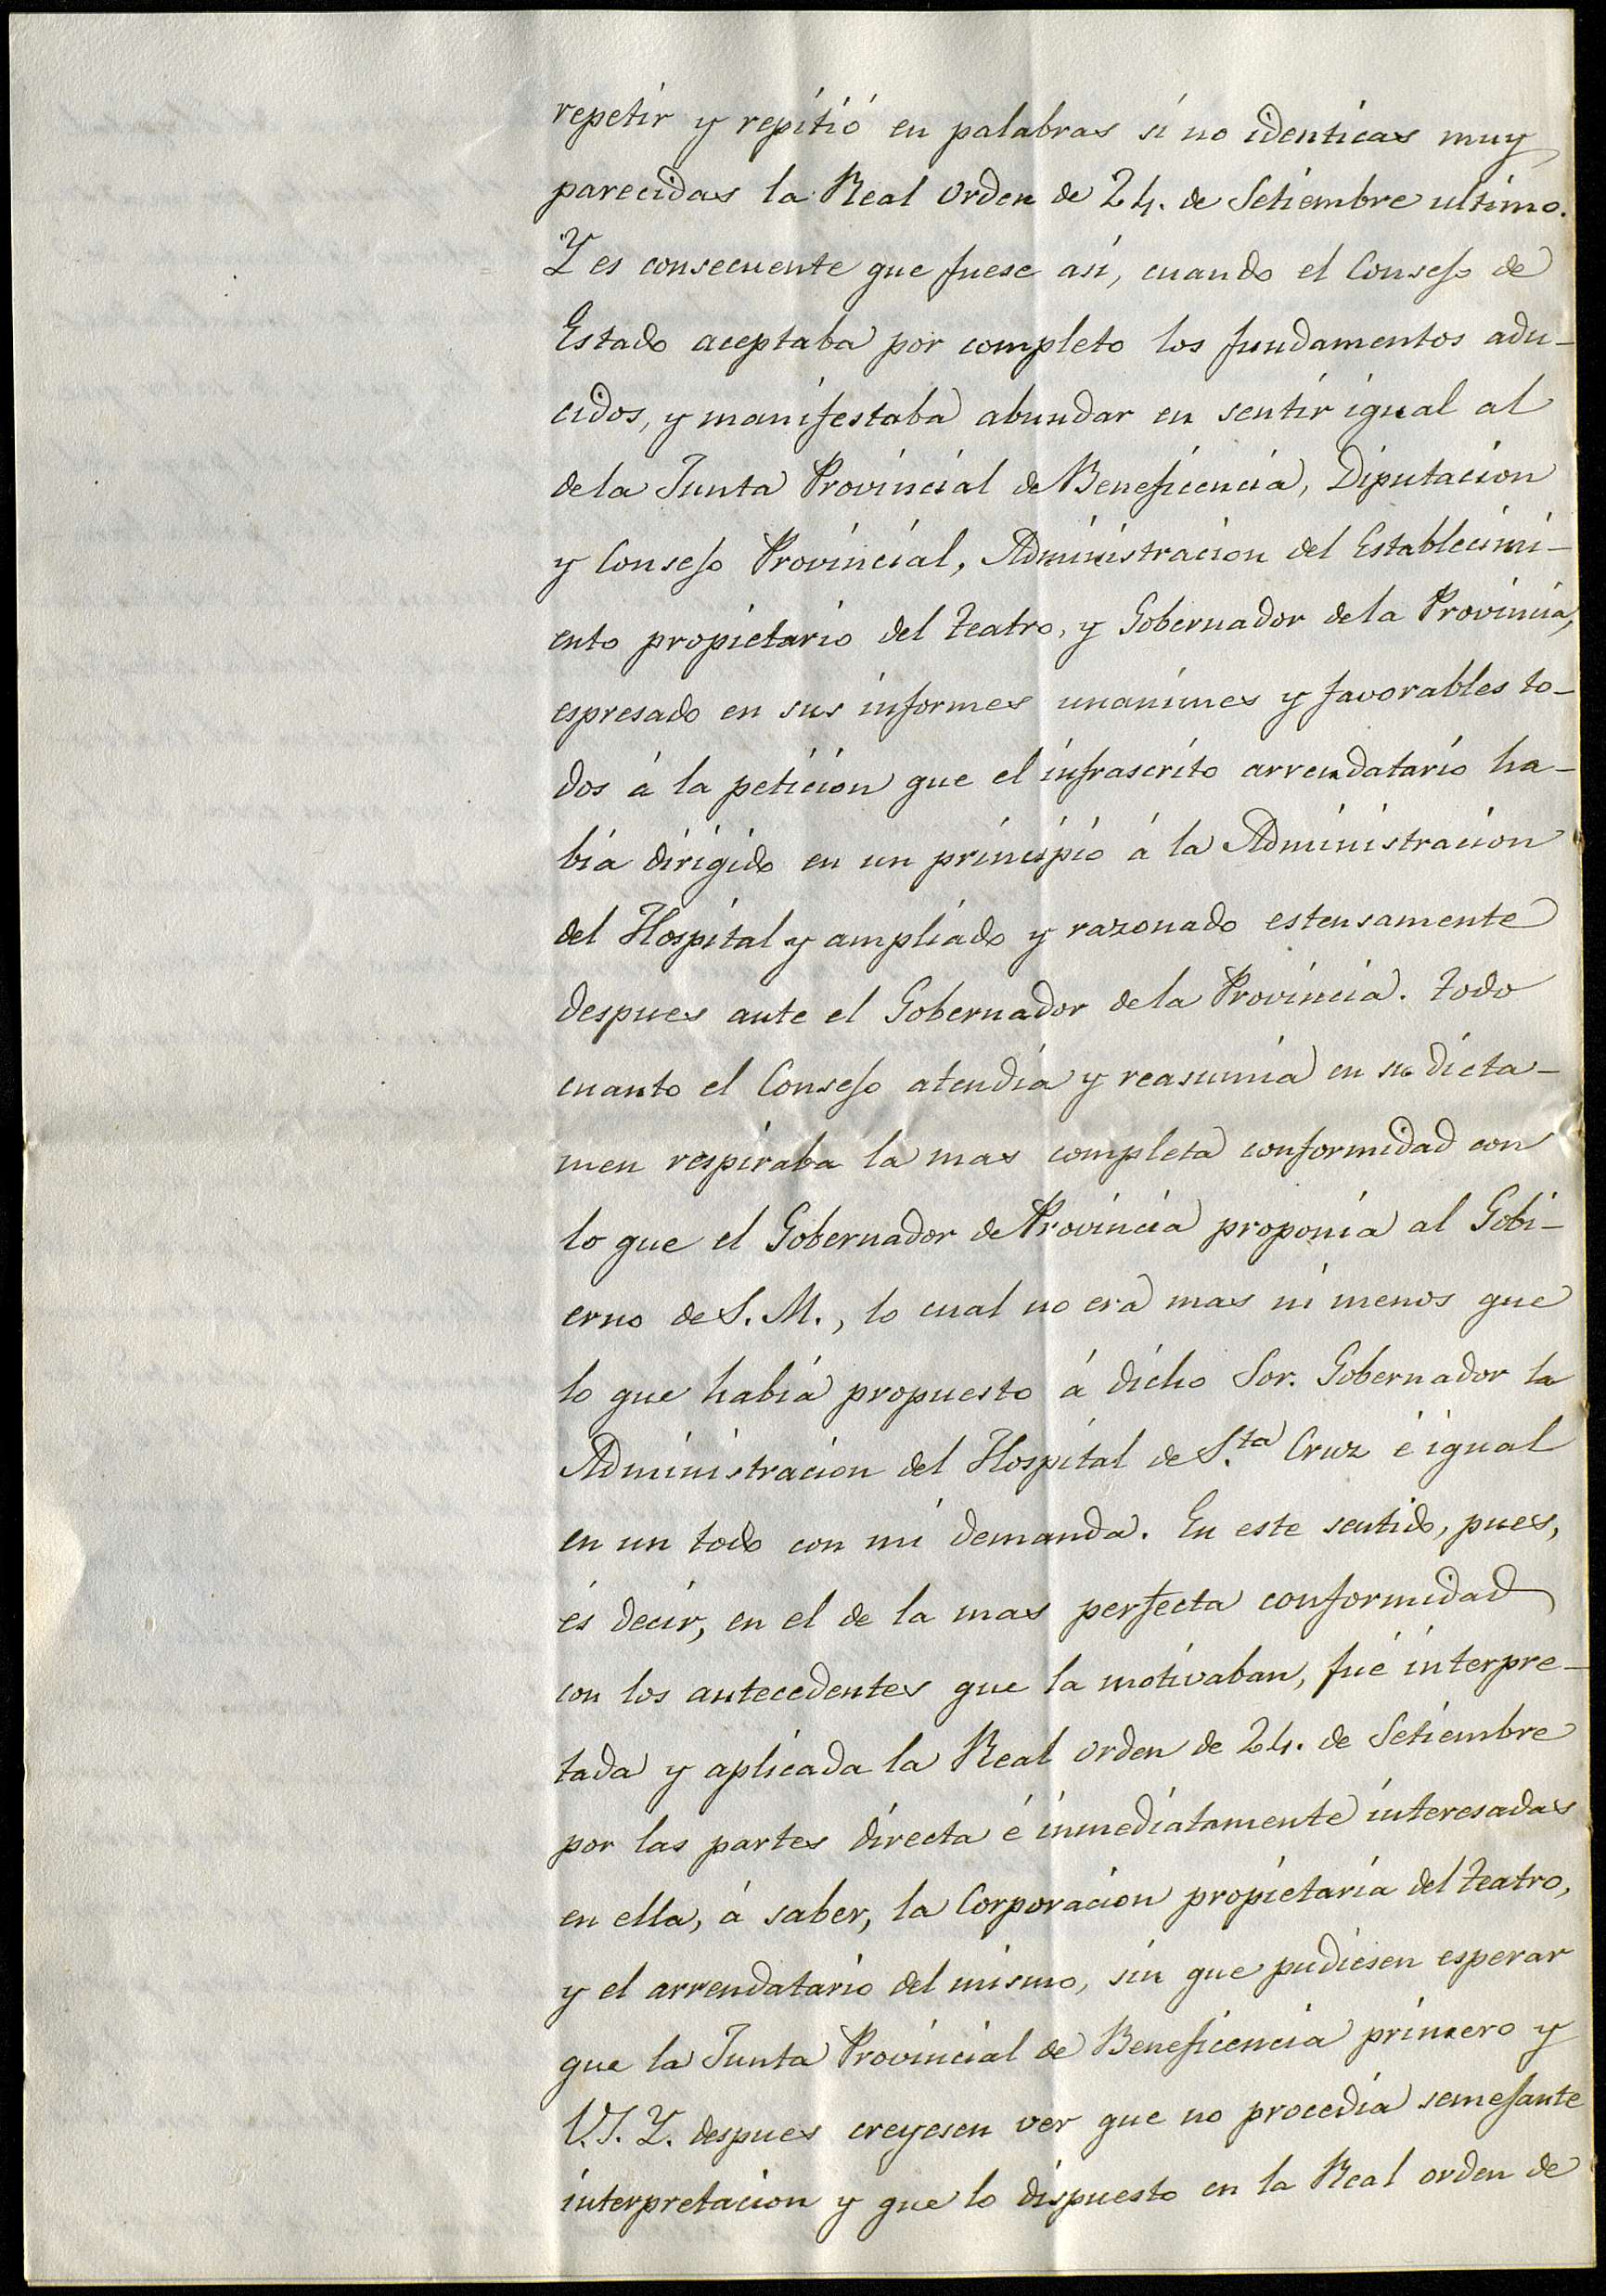 repetir y repitió en palabras si no identicas muy
parecidas la Real Orden de 24. de Setiembre ultimo.
Y es consecuente que fuese asi, cuando el Consejo de
Estado aceptaba por completo los fundamentos adu-
cidos, y manifestaba abundar en sentir igual al
de la Junta Provincial de Beneficencia, Diputacion
y Consejo Provincial, Administracion del Establecimi-
ento propietario del Teatro, y Gobernador de la Provincia,
espresado en sus informes unanimes y favorables to-
dos á la peticion que el infrascrito arrendatario ha-
bia dirigido en un principio á la Administracion
del Hospital y ampliado y razonado estensamente
despues ante el Gobernador de la Provincia. Todo
cuanto el Consejo atendia y reasumia en su dicta-
men respiraba la mas completa conformidad con
lo que el Gobernador de Provincia proponia al Gobi-
erno de S. M., lo cual no era mas ni menos que
lo que habia propuesto á dicho Sor. Gobernador la
Administracion del Hospital de S.ta Cruz é igual
en un todo con mi demanda. En este sentido, pues,
és decir, en el de la mas perfecta conformidad
con los antecedentes que la motivaban, fué interpre-
tada y aplicada la Real orden de 24. de Setiembre
por las partes directa é inmediatamente interesadas
en ella, á saber, la Corporacion propietaria del Teatro,
y el arrendatario del mismo, sin que pudiesen esperar
que la Junta Provincial de Beneficencia primero y
V. S. Y. despues creyesen ver que no procedia semejante
interpretacion y que lo dispuesto en la Real orden de